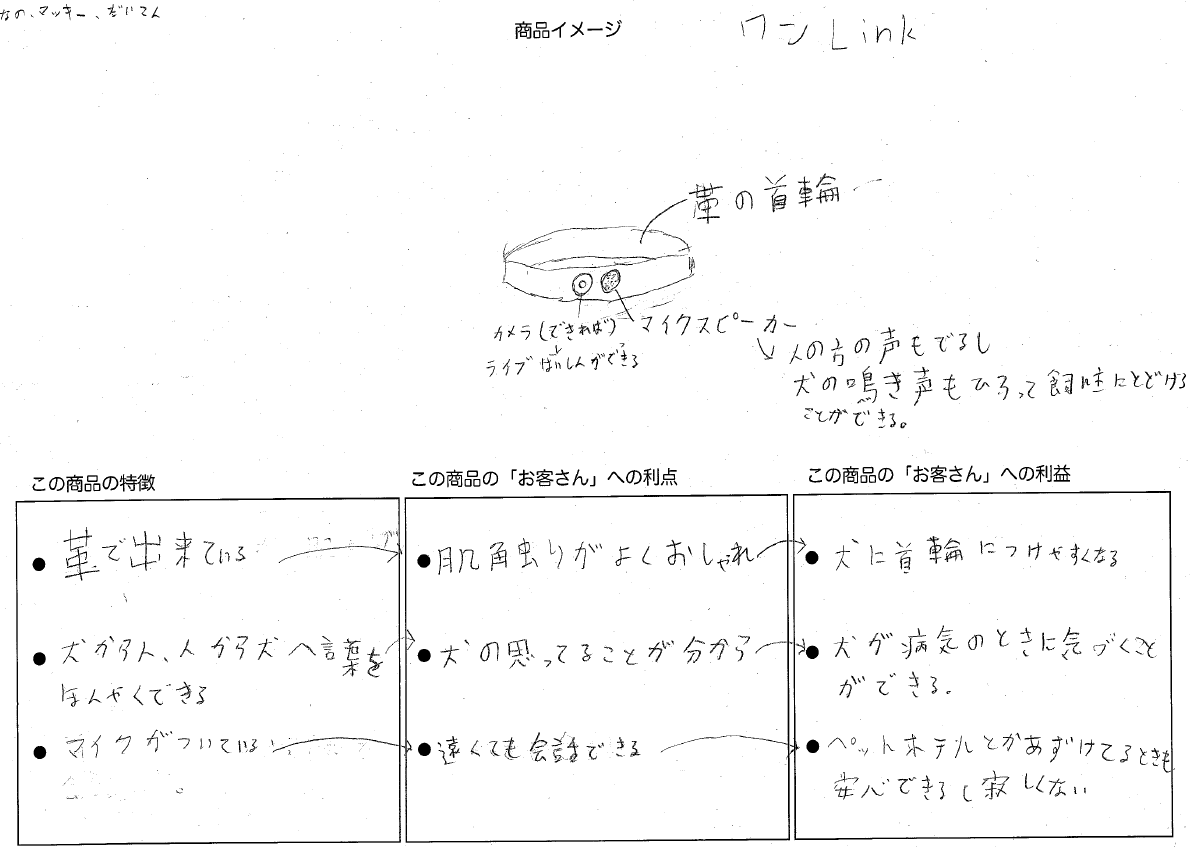 なの、マッキー、だいてん
商品イメージ
ワン Link
革の首輪
カメラ(できれば)
ライブはいしんができる
マイクスピーカー
人の方の声もでるし
犬の鳴き声もひろって飼主にとどける
ことができる。
この商品の特徴
● 革で出来ている
● 犬から人、人から犬へ言葉を
ほんやくできる
● マイクがついている
この商品の「お客さん」への利点
● 肌角虫りがよくおしゃれ
● 犬の思ってることが分かる
● 遠くても会話できる
この商品の「お客さん」への利益
● 犬に首輪につけやすくなる
● 犬が病気のときに気づくこと
ができる。
● ペットホテルとかあずけてるときも
安心できるし寂しくない